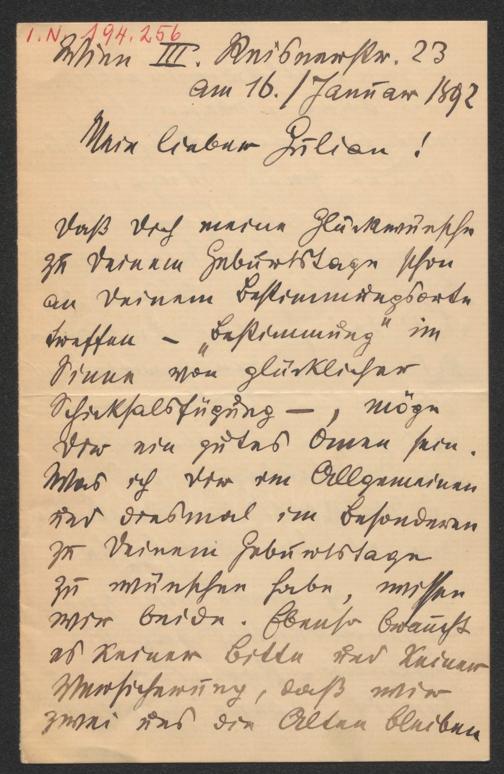 I.N. 194.256
Wien III. Reisnerstr. 23
am 16./Januar 1892
Mein lieber Julian!
Daß dich meine Glückwünsche
zu Deinem Geburtstage schon
an Deinem Bestimmungsorte
treffen – „Bestimmung" im
Sinne von glücklicher
Schicksalsfügung –, möge
Dir ein gutes Omen sein.
Was ich Dir im Allgemeinen
und diesmal im Besonderen
zu Deinem Geburtstage
zu wünschen habe, wissen
wir beide. Ebenso braucht
es keiner Bitte und keiner
Versicherung, daß wir
zwei uns die Alten bleiben